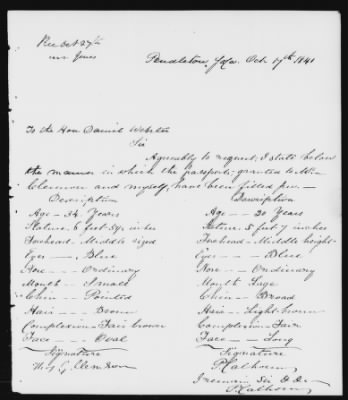 Rec Oct 27th
Mr Jones
Pendleton, So Ca. Oct 17th 1841
To the Hon Daniel Webster
Sir
Agreeably to request, I state below
the manner in which the passports granted to Mr.
Clemson and myself, have been filled
Description Description
Age - 34 Years Age - - 30 Years
Stature - 6 feet inches Stature - 5 feet 7 inches
Forehead - Middle sized Forehead - Middle height
Eyes - Blue Eyes - - Blue
Nose - - Ordinary Nose - - Ordinary
Mouth - Small Mouth Large
Chin - - Pointed Chin - - Broad
Hair - - Brown Hair - Light brown
Complexion - Fair brown Complexion - Fair
Face - - Oval Face - - Long
Signature Signature
Thos G Clemson P Calhoun
I remain Sir &c &c
P Calhoun